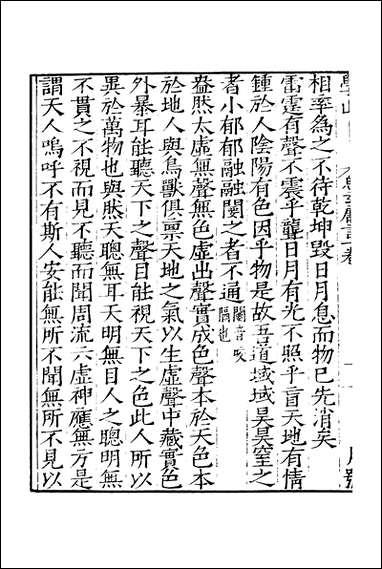 相率為之不待乾坤毀日月息而物已先消矣
雷霆有聲不震乎聾日月有光不照乎盲天地有情
鍾於人陰陽有色因乎物是故五道域域昊昊窒之
者小郁郁融融閡之者不通閡音咳隔也
盎然太虛無聲無色虛出聲實成色聲本於天色本
於地人與鳥獸俱禀天地之氣以生虛聲中藏實色
外暴耳能聽天下之聲目能視天下之色此人所以
異於萬物也與然天聰無耳天明無目人之聰明無
不貫之不視而見不聽而聞周流六虛神應無方是
謂天人嗚呼不有斯人安能無所不聞無所不見以